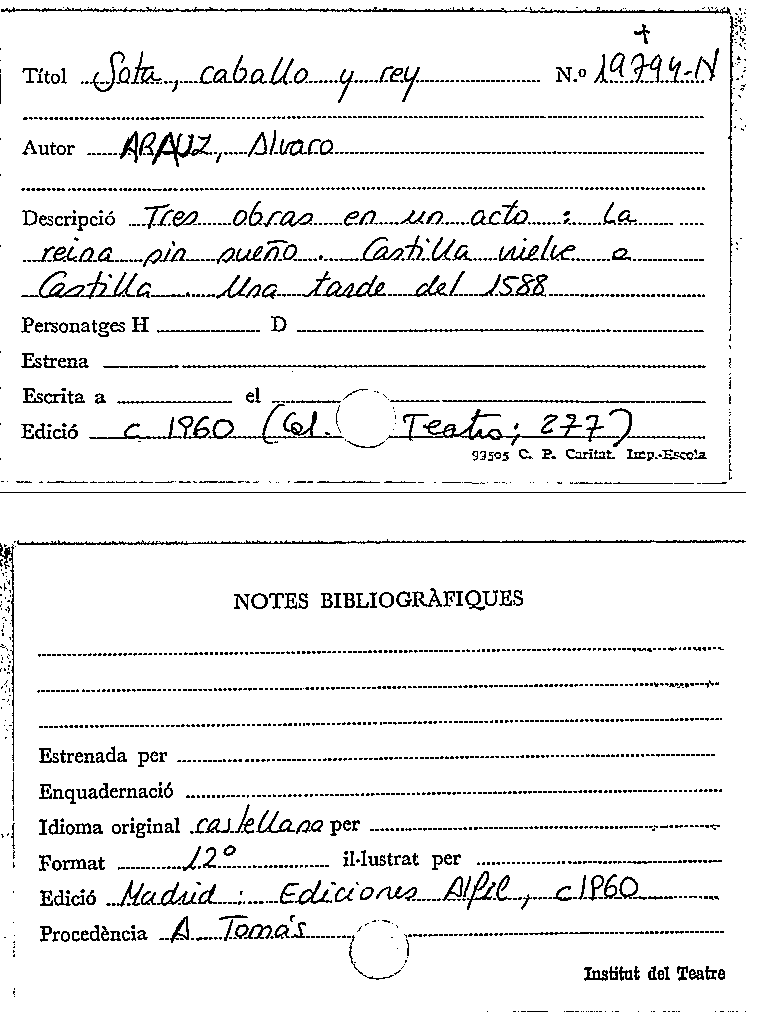 +
Títol Sota, caballo y rey N.º 19794-N
Autor ARAUZ, Alvaro
Descripció Tres obras en un acto : La
reina sin sueño. Castilla vuelve a
Castilla. Una tarde del 1588
Personatges H D
Estrena
Escrita a el
Edició c 1960 (Col. Teatro; 277)
99505 C. P. Caritat. Imp.-Escola
NOTES BIBLIOGRÀFIQUES
Estrenada per
Enquadernació
Idioma original castellano per
Format 12º il·lustrat per
Edició Madrid : Ediciones Alfil, c1960
Procedència A. Tomás
Institut del Teatre